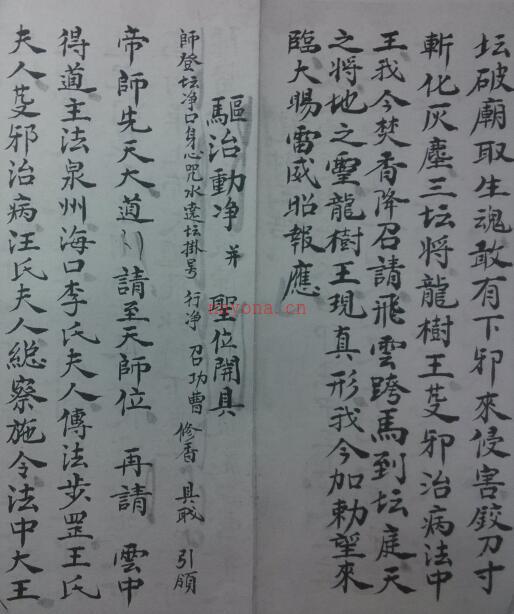 坛破廟取生魂敢有下邪來侵害鉸刀寸
斬化灰塵三坛將龍樹王茇邪治病法中
王我今焚香降召請飛雲跨馬到坛庭天
之將地之靈龍樹王現真形我今加勅望來
臨大賜雷威昭報應
驅治動净 并 聖位開具
師登坛净口身心咒水遶坛掛号 行净 召功曹 修香 具戝 引頎
帝師先天大道 請至天師位 再請 雲中
得道主法泉州海口李氏夫人傳法步罡王氏
夫人茇邪治病汪氏夫人総察施令法中大王
miyona.cn